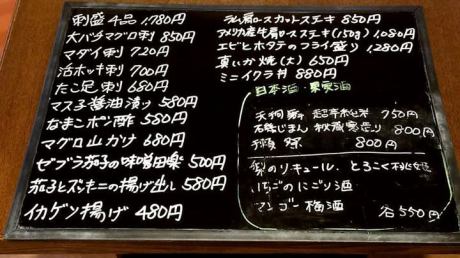 刺盛 4品 1,780円
大バチマグロ刺 850円
マダイ刺 720円
活ホッキ刺 700円
たこ足刺 680円
マス子醤油漬り 580円
なまこポン酢 580円
マグロ山かけ 680円
ゼブラ茄子の味噌田楽 500円
茄子とズッキーニの揚げ出し 580円
イカゲソ揚げ 480円
ラム肩ロースカットステーキ 850円
アメリカ産牛肩ロースステーキ(150g) 1,080円
エビとホタテのフライ盛り 1,280円
真いか焼(大) 650円
ミニイクラ丼 890円
日本酒・果実酒
天狗舞 超辛純米 750円
磯じまん 800円
獺祭 800円
梨のリキュール、とろこく桃姫
いちごのにごり酒
マンゴー梅酒
各550円